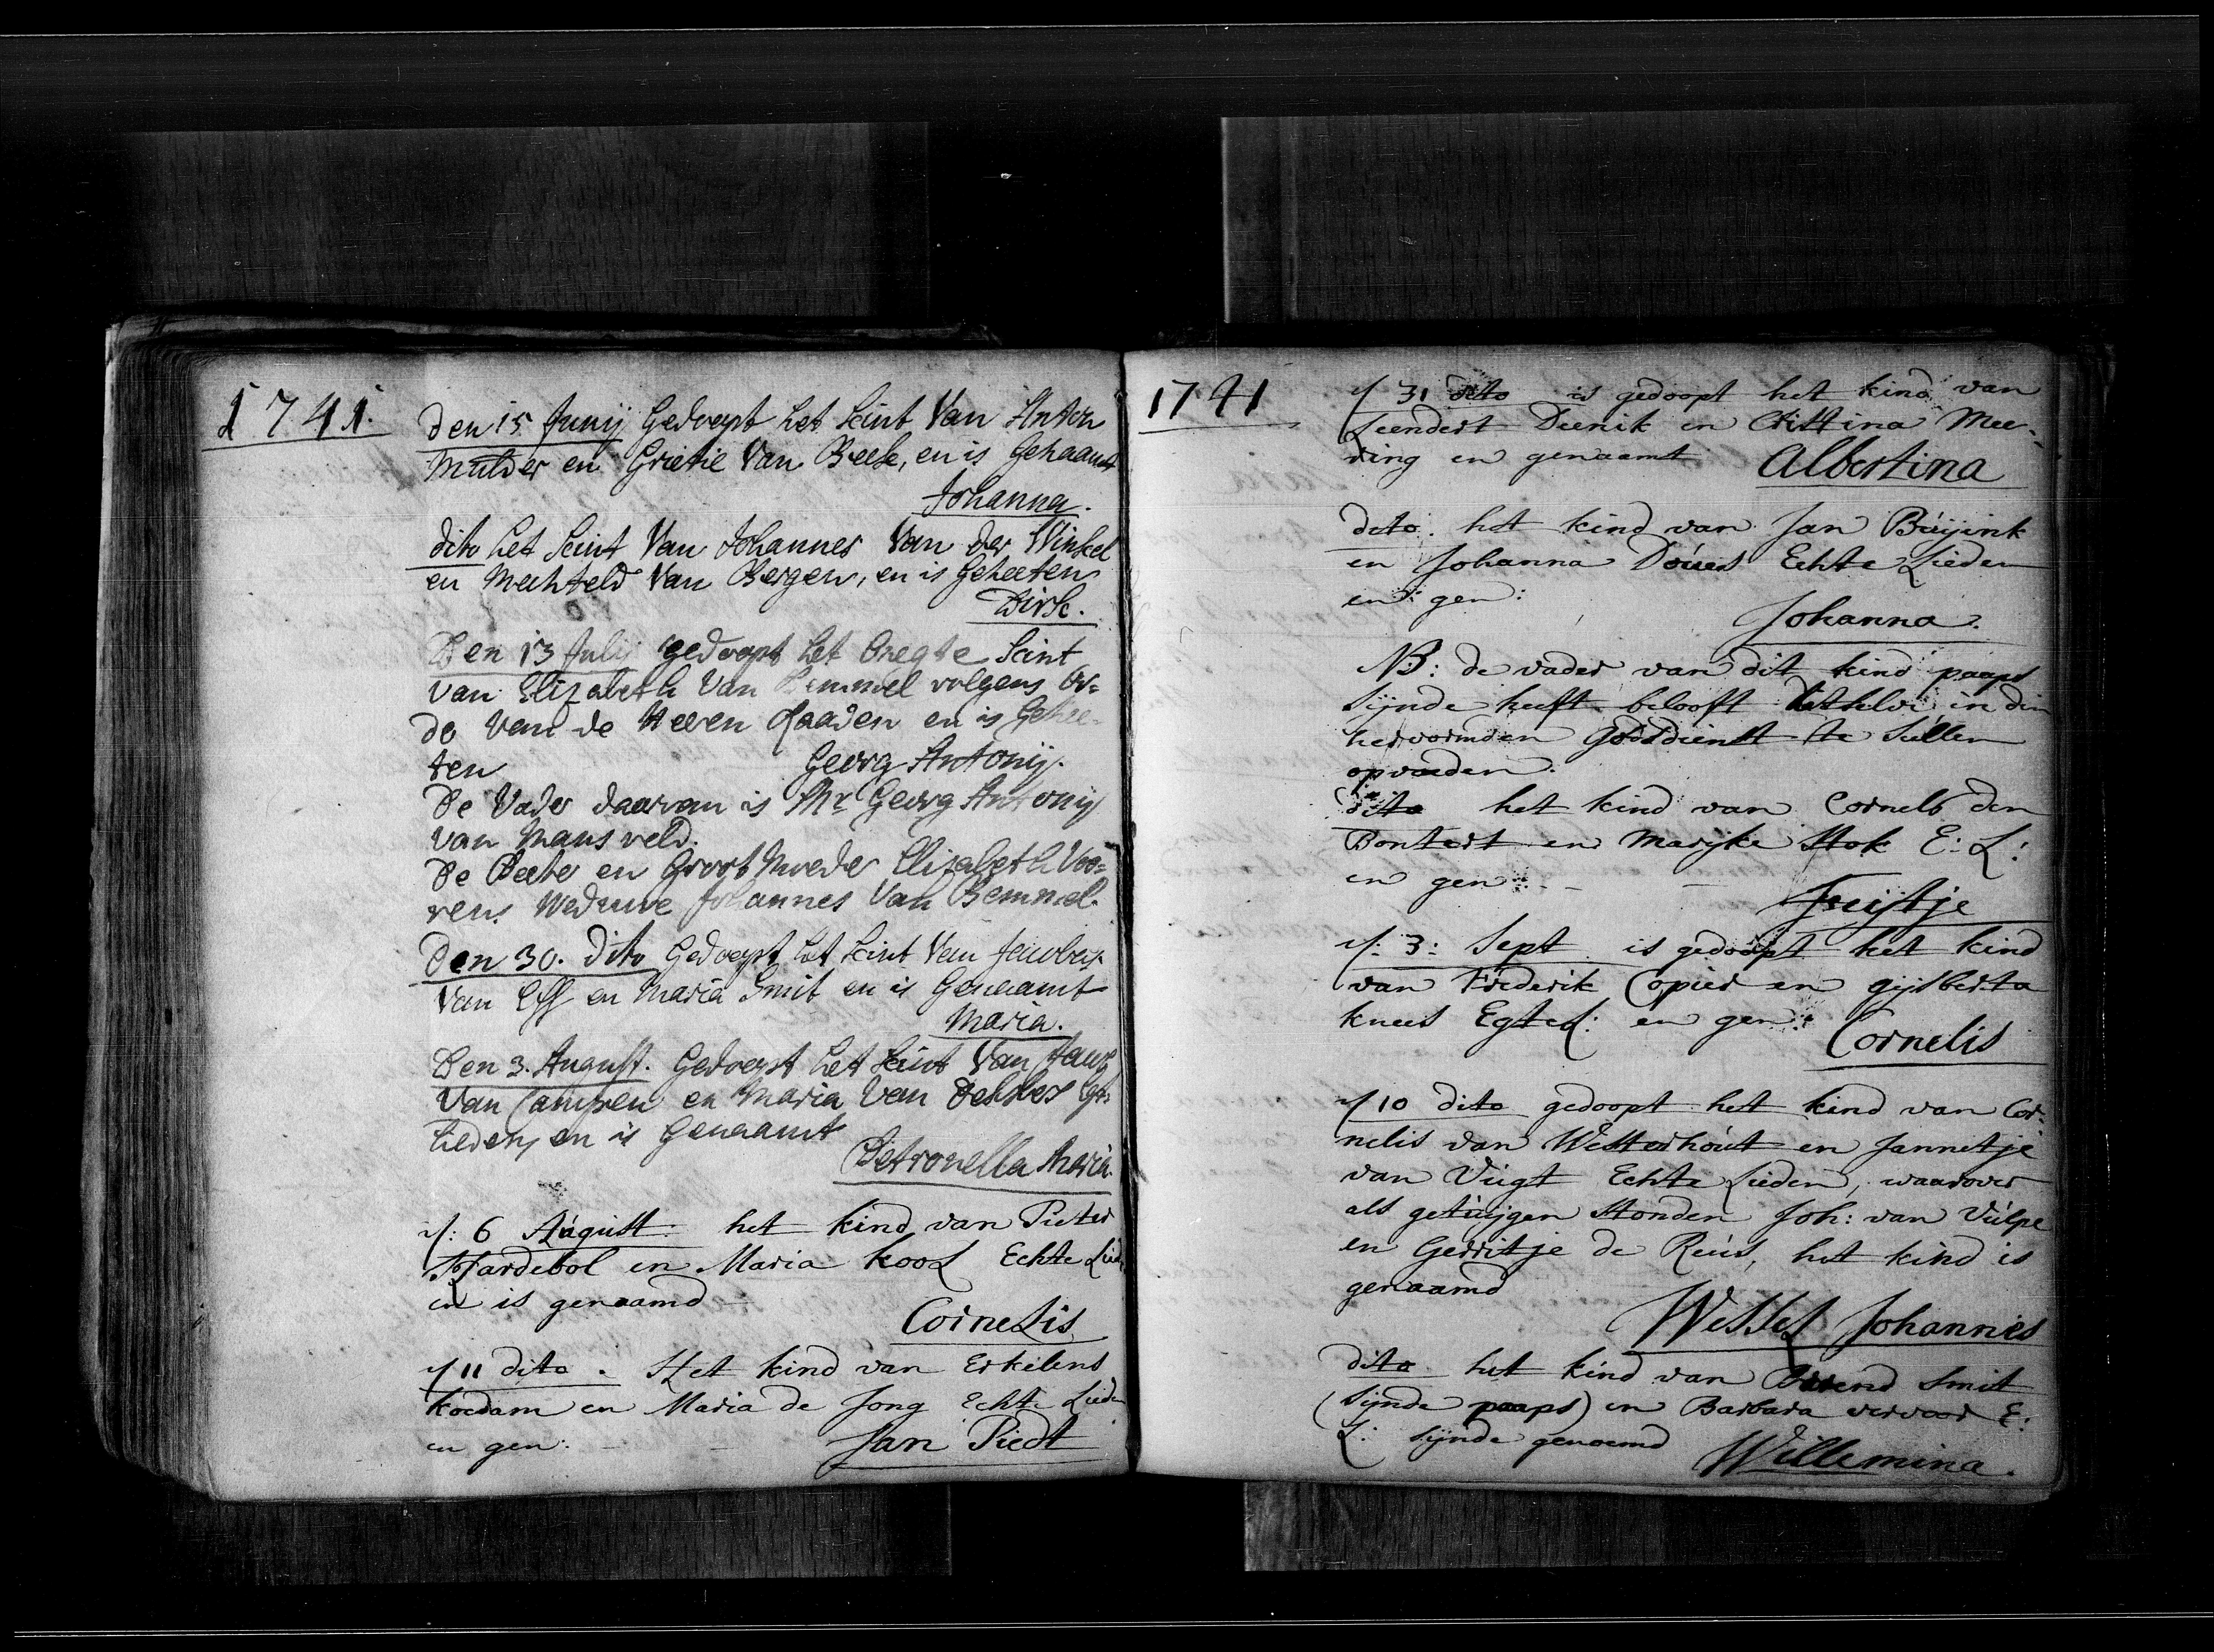 1741.
Den 15 Junij Gedoopt het kint Van Anton
Mulder en Grietie Van Beek, en is Genaamt
Johanna.
dito het kint Van Johannes Van der Winkel
en Mechteld Van Bergen, en is Geheeten
Dirk.
Den 13 Julij gedoopt het Onegte kint
van Elizabeth Van Bemmel volgens Or-
de van de Heeren Raaden en is Gehee-
ten Georg Antonij.
De Vader daarvan is Mr Georg Antonij
van Mansveld.
De Peete en Groot Moeder Elizabeth Voo-
rens Weduwe Johannes Van Bemmel.
Den 30. dito Gedoopt het kint Van Jacobus
Van Eff en Maria Smit en is Genaamt
Maria.
Den 3. August. Gedoopt het kint Van
Van Campen en Maria Van
Lieden, en is Genaamt
Petronella Maria.
6 August het kind van Pieter
Hardebol en Maria Kool Echte Lied
en is genaamd
Cornelis
11 dito. Het kind van Erkelens
Koedam en Maria de Jong Echte Lieden
en gen: Jan Piedt
1741
31 dito is gedoopt het kind van
Leendert Dienik en Cristina Mee-
ring en genaamt Albertina
dito. het kind van Jan Buijink
en Johanna Doues Echte Lieden
en gen:
Johanna.
NB: de vader van dit kind paaps
sijnde heeft belooft hetselve in den
hervormden Godsdienst te sullen
opvoeden.
dito het kind van Cornels den
Bontert en Marijke Stok E: L:
en gen:
Fruijtje
3: Sept is gedoopt het kind
van Frederik Copier en gijsberta
knees Egte L: en gen: Cornelis
10 dito gedoopt het kind van Cor-
nelis van Westerhout en Jannetje
van Vugt Echte Lieden, waarover
als getuijgen stonden Joh: van Vulpe
en Gerritje de Reus, het kind is
genaamd
Wessel Johannes
dito het kind van Berend Smit
(sijnde paaps) en Barbara vervoor E:
L: sijnde genoemd Willemina.